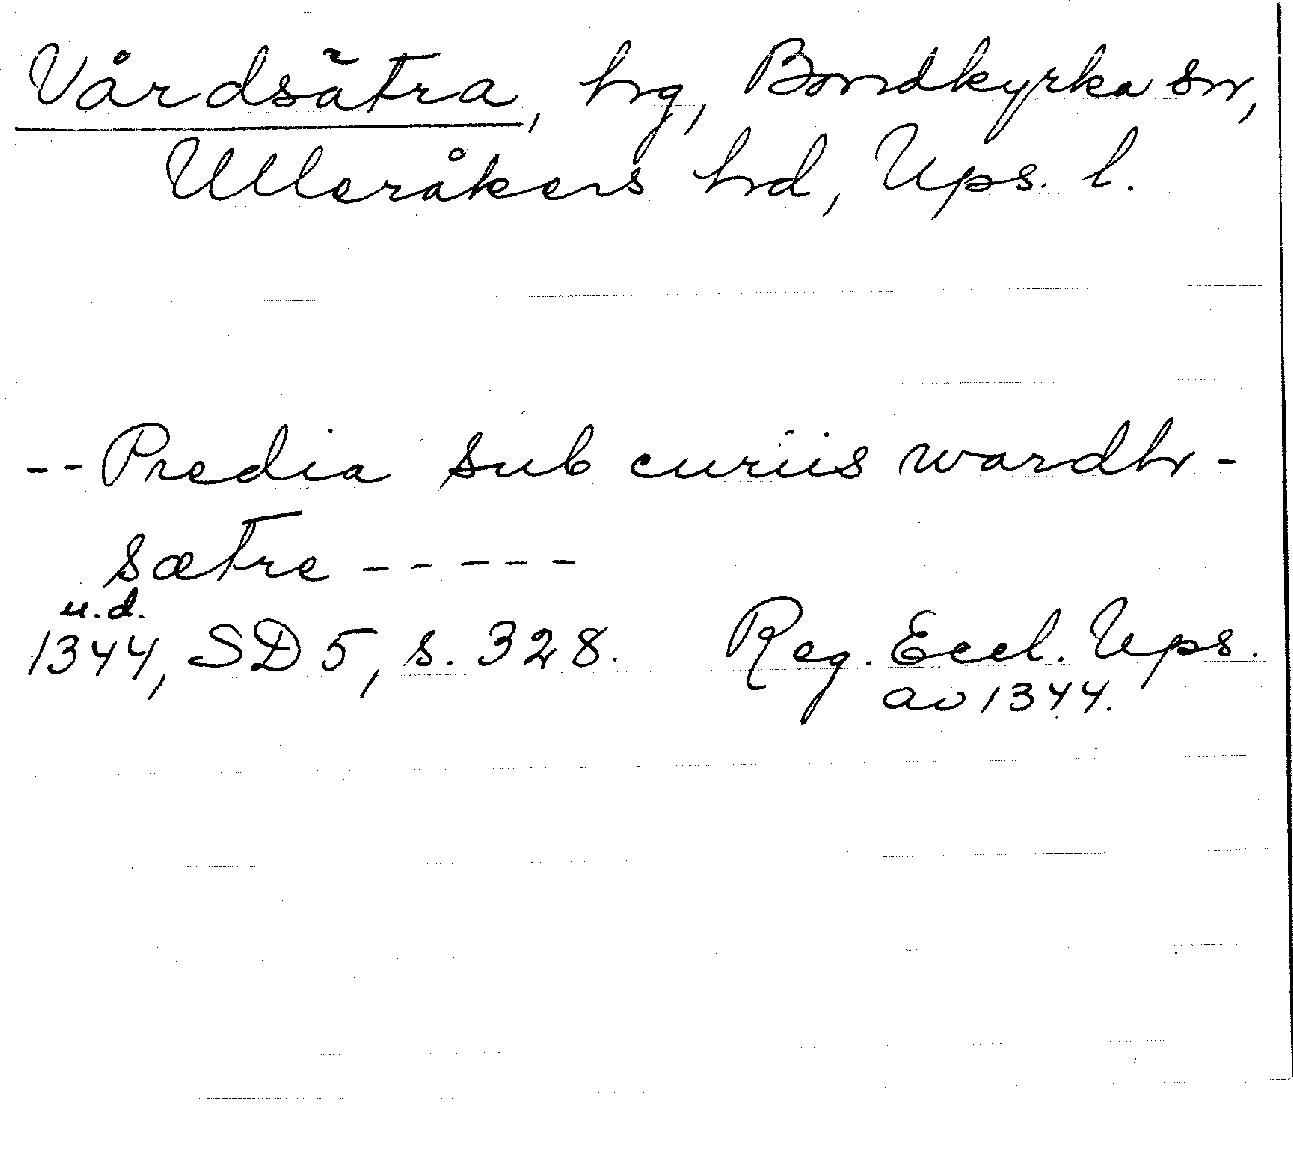 Vårdsätra, hg, Bondkyrka sn,
Ulleråkers hd, Ups. l.
-- Predia sub curiis wardh-
sætre -----
u.d.
1344, SD 5, s. 328. Reg. Eccl. Ups.
av 1344.